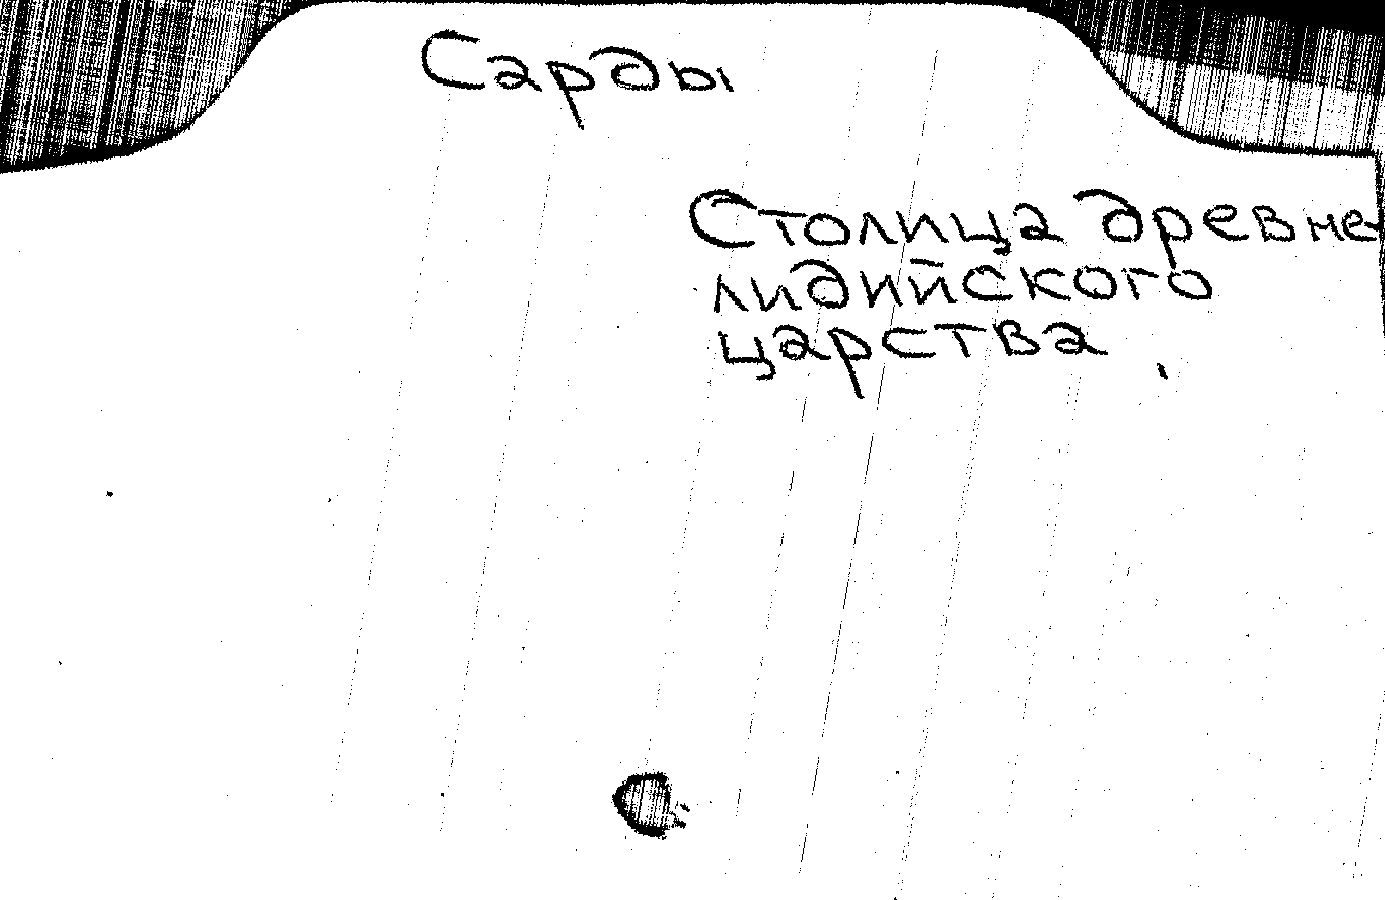 Сарды
Столица древне-
лидийского
царства.